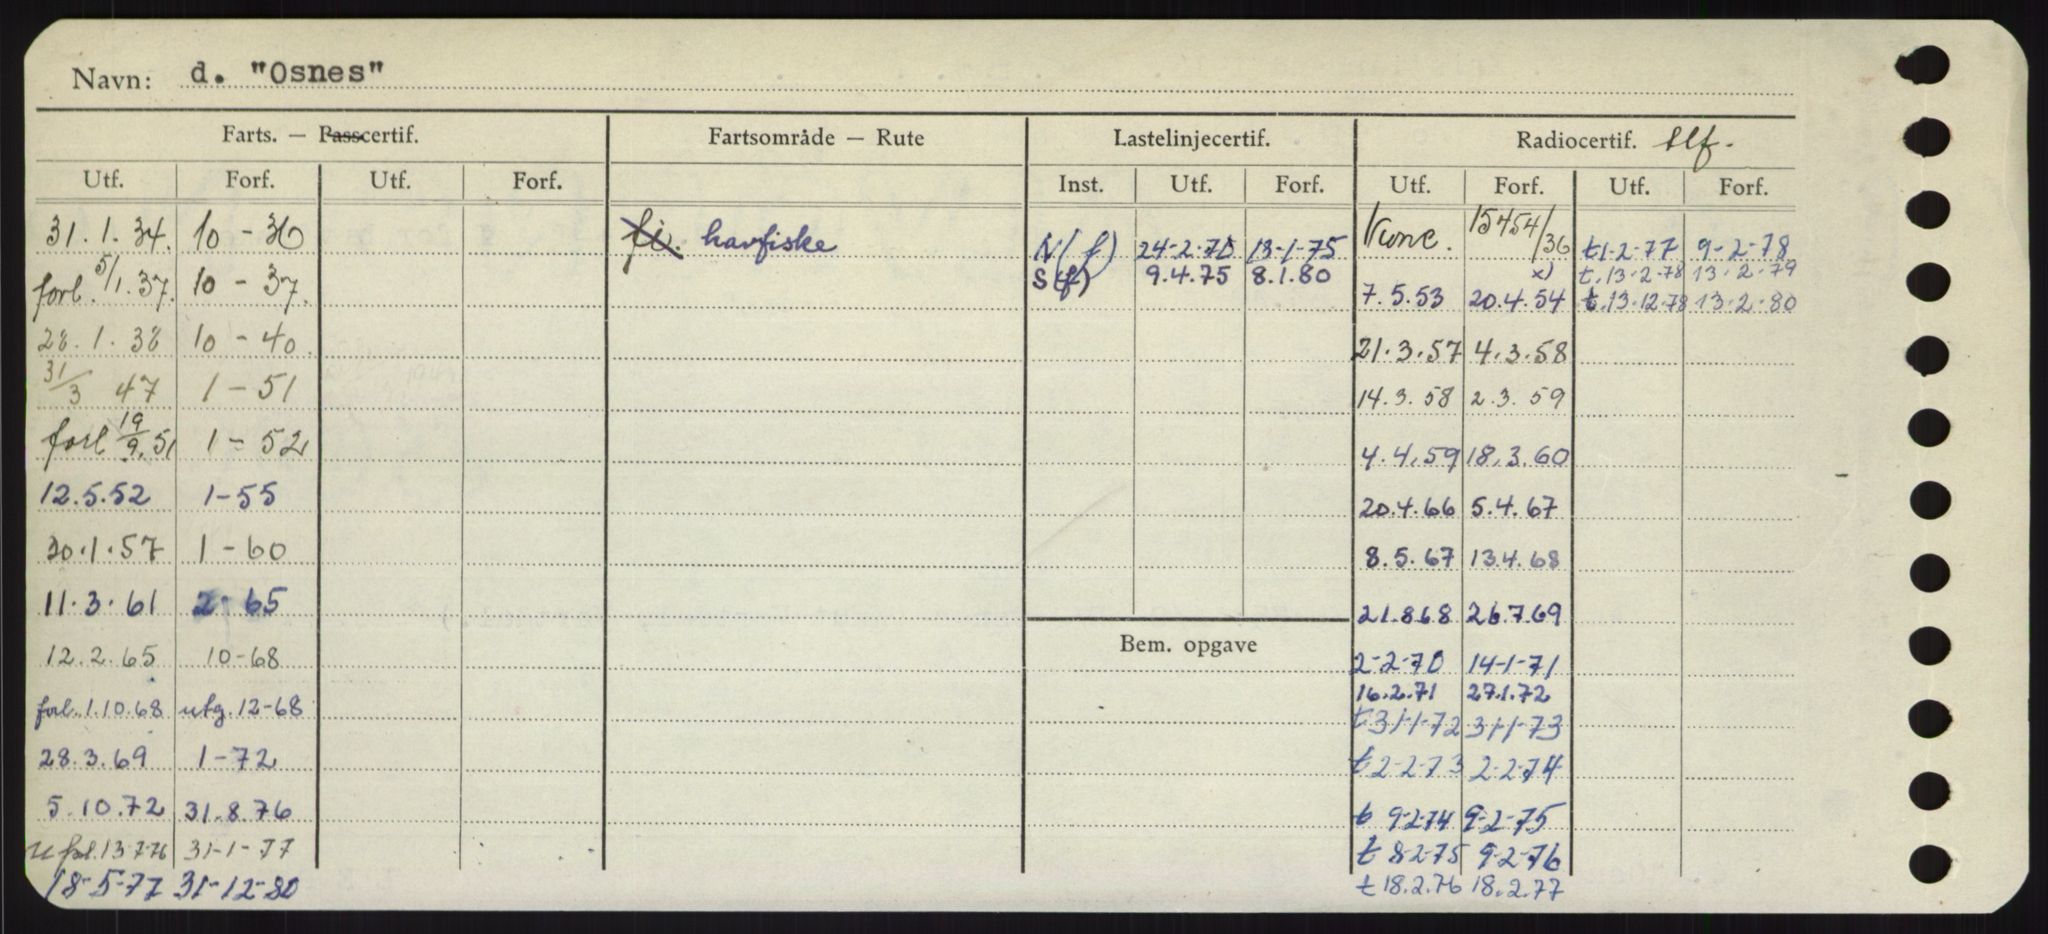 Navn: d. "Osnes"
Farts. — Passcertif. Fartsområde — Rute Lastelinjecertif. Radiocertif. tlf.
Utf. Forf. Utf. Forf. Inst. Utf. Forf. Utf. Forf. Utf. Forf.
31.1.34. 10 - 36 fi. havfiske N(f) 24-2-70 13-1-75 Konc. 15454/36 t1-2-77 9-2-78
forl. 5/1.37. 10 - 37. S(f) 9.4.75 8.1.80 7.5.53 20.4.54 x) t.13-2-78 13-2-79
t.13-12-78 13-2-80
28.1.38 10 - 40. 21.3.57 4.3.58
31/3 47 1 - 51 14.3.58 2.3.59
forl 19/9.51 1 - 52 4.4.59 18.3.60
12.5.52 1-55 20.4.66 5.4.67
30.1.57 1 - 60 8.5.67 13.4.68
11.3.61 2-65 21.8.68 26.7.69
12.2.65 10-68 Bem. opgave 2-2-70 14-1-71
16.2.71 27.1.72
forl.1.10.68 utg.12-68 t31-1-72 31-1-73
28.3.69 1-72 t2-2-73 2-2-74
5.10.72 31.8.76 t 9-2-74 9-2-75
13-7-76 31-1-77 t 8-2-75 9-2-76
18-5-77 31-12-80 t 18.2.76 18.2.77